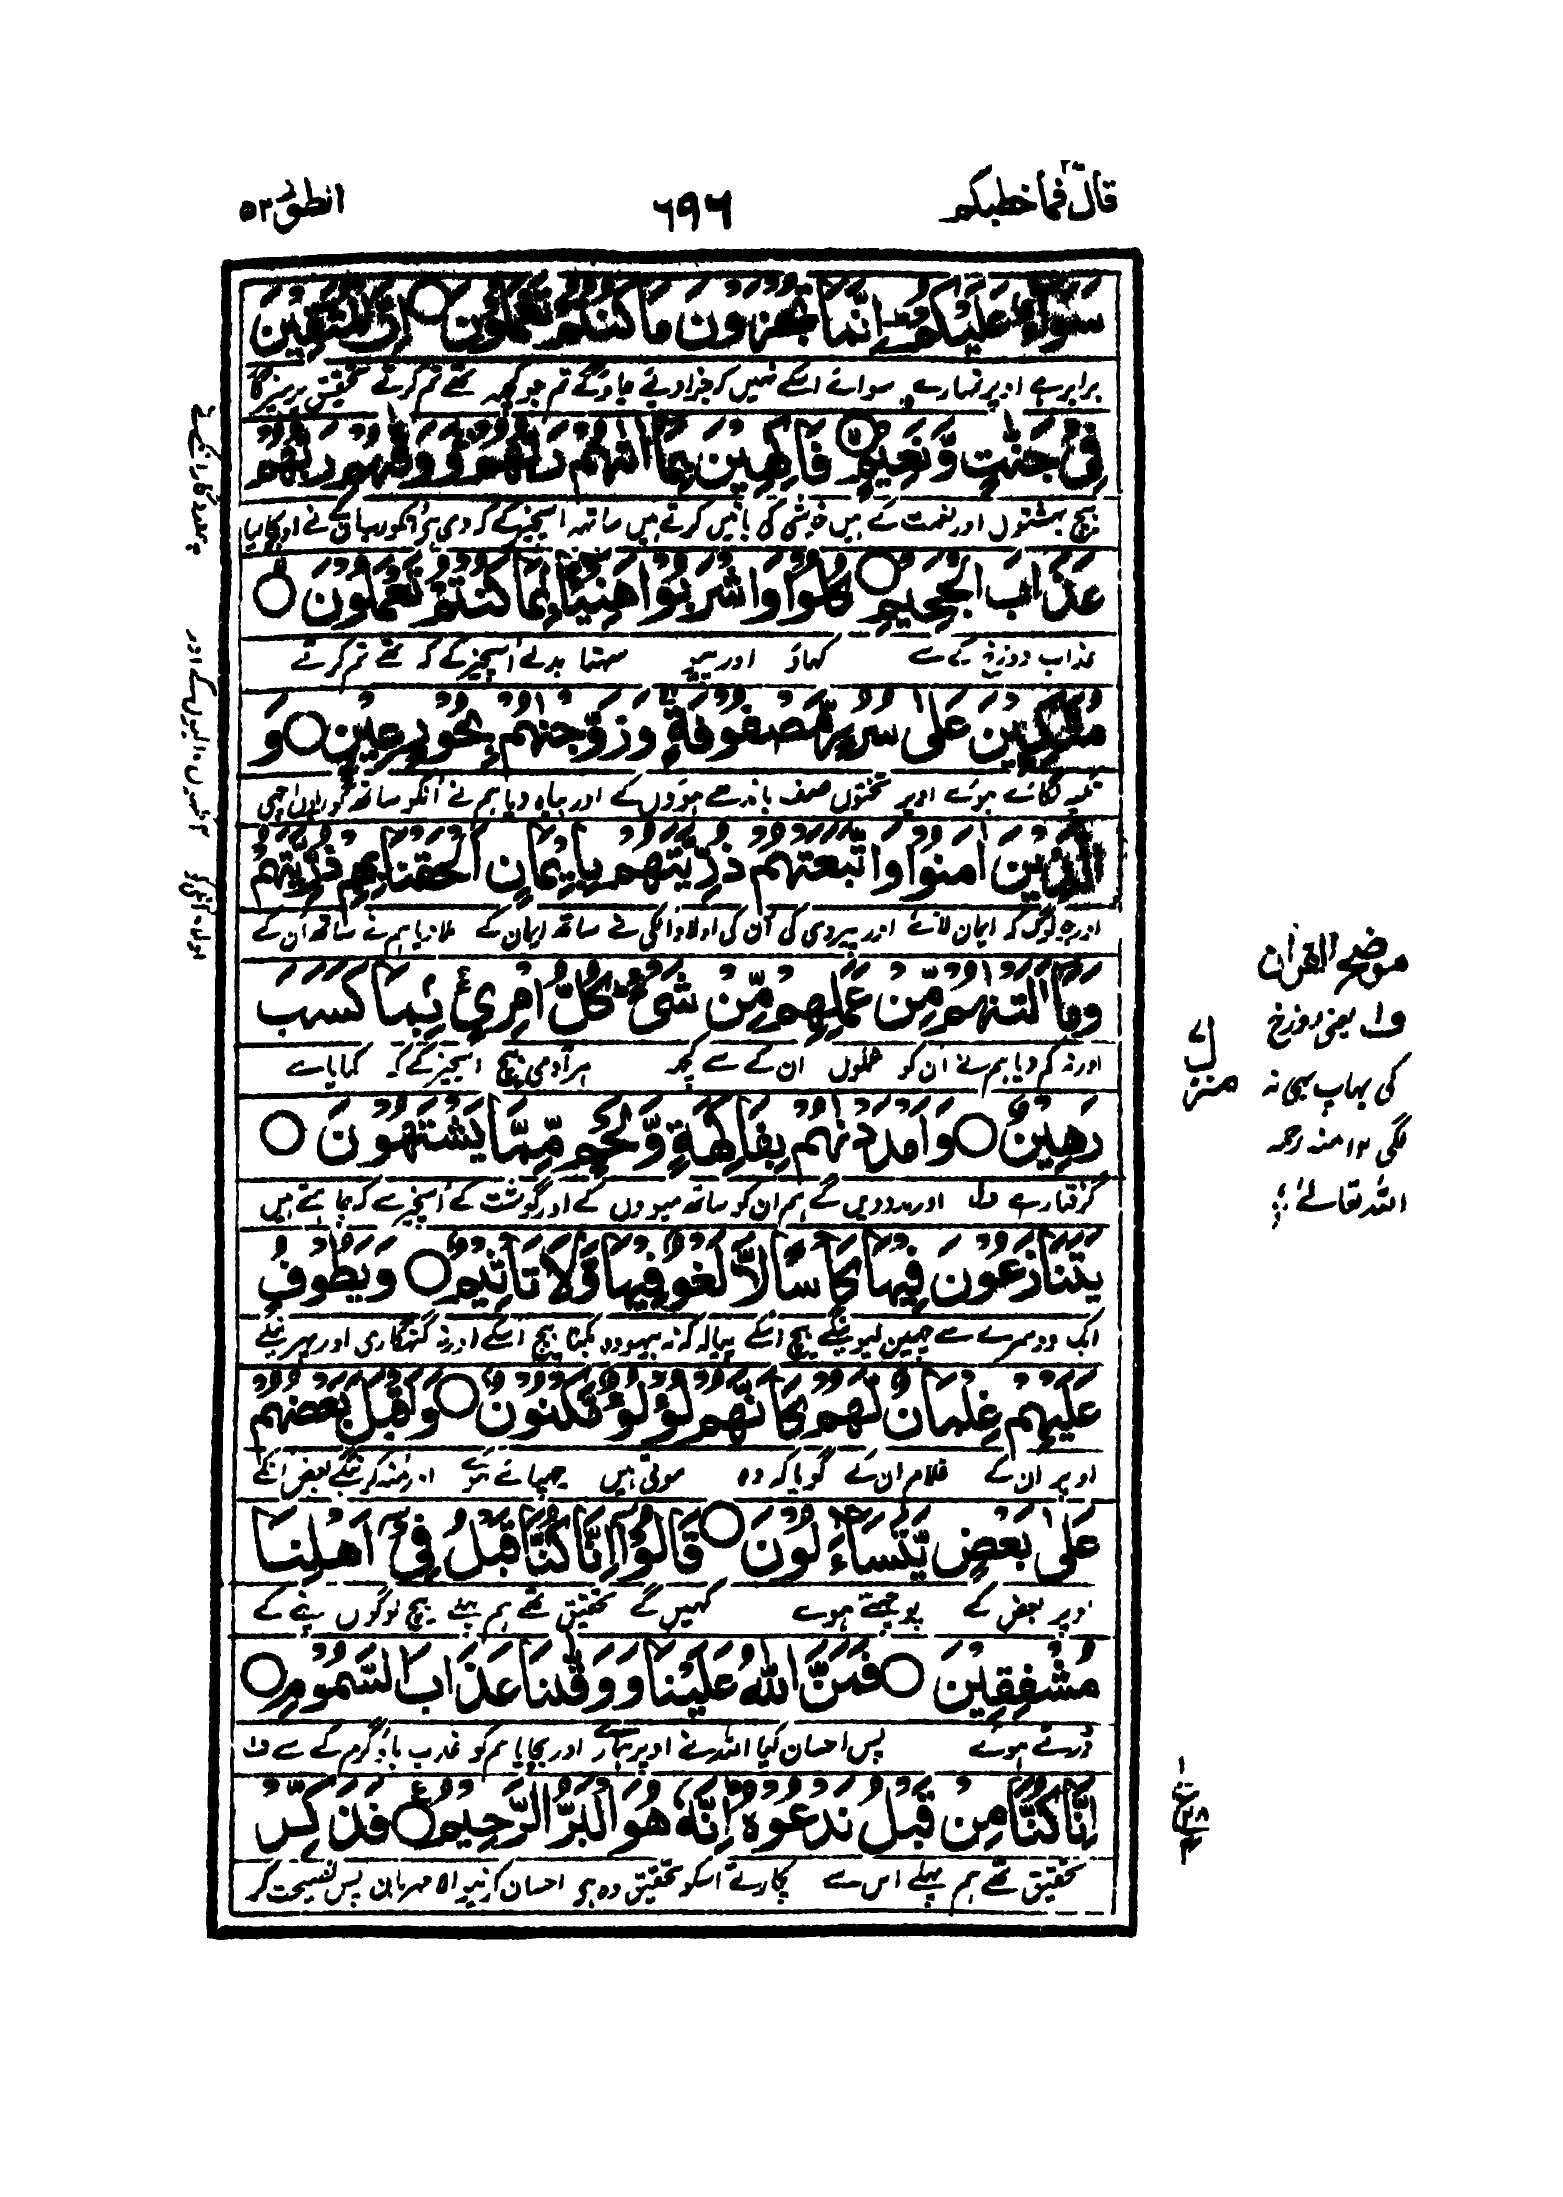 قال فما خطبكم ۲۷
۶۹۶
الطور ۵۲
سَوَآءٌ عَلَيْكُمْ ؕ اِنَّمَا تُجْزَوْنَ مَا كُنْتُمْ تَعْمَلُوْنَ ○ اِنَّ الْمُتَّقِيْنَ
برابر ہے اوپر تمہارے سوائے اسکے نہیں کہ جزا دئے جاؤگے تم جو کچھ تھے تم کرتے تحقیق پرہیزگار
فِيْ جَنّٰتٍ وَّنَعِيْمٍ ○ فَاكِهِيْنَ بِمَآ اٰتٰىهُمْ رَبُّهُمْ ۚ وَوَقٰىهُمْ رَبُّهُمْ
بیچ بہشتوں اور نعمت کے ہیں خوشی کی باتیں کرتے ہیں ساتھ اسچیز کے کہ دی
عَذَابَ الْجَحِيْمِ ○ كُلُوْا وَاشْرَبُوْا هَنِيْٓئًا بِمَا كُنْتُمْ تَعْمَلُوْنَ ○
عذاب دوزخ کے سے کھاؤ اور پیو سہتا بدلے اسچیز کے کہ تھے تم کرتے
مُتَّكِـِٕيْنَ عَلٰى سُرُرٍ مَّصْفُوْفَةٍ ۚ وَزَوَّجْنٰهُمْ بِحُوْرٍ عِيْنٍ ○ وَ
تکیہ لگائے ہوئے اوپر تختوں صف باندھے ہوؤں کے اور بیاہ دیا ہم نے انکو ساتھ
الَّذِيْنَ اٰمَنُوْا وَاتَّبَعَتْهُمْ ذُرِّيَّتُهُمْ بِاِيْمَانٍ اَلْحَقْنَا بِهِمْ ذُرِّيَّتَهُمْ
اور جو لوگ کہ ایمان لائے اور پیروی کی ان کی اولاد انکی نے ساتھ ایمان کے ملا دیا ہم نے ساتھ ان کے
وَمَآ اَلَتْنٰهُمْ مِّنْ عَمَلِهِمْ مِّنْ شَيْءٍ ؕ كُلُّ امْرِئٍۭ بِمَا كَسَبَ
اور نہ کم دیا ہم نے ان کو عملوں ان کے سے کچھ ہر آدمی بیچ اسچیز کے کہ کمایا ہے
رَهِيْنٌ ○ وَاَمْدَدْنٰهُمْ بِفَاكِهَةٍ وَّلَحْمٍ مِّمَّا يَشْتَهُوْنَ ○
گرفتار ہے اور مدد دیں گے ہم ان کو ساتھ میووں کے اور گوشت کے اسچیز سے کہ چاہتے ہیں
يَتَنَازَعُوْنَ فِيْهَا كَاْسًا لَّا لَغْوٌ فِيْهَا وَلَا تَاْثِيْمٌ ○ وَيَطُوْفُ
ایک دوسرے سے چھین لیویں گے بیچ اسکے پیالہ کہ نہ بیہودہ بکنا بیچ اسکے اور نہ گنہگاری اور پھریں گے
عَلَيْهِمْ غِلْمَانٌ لَّهُمْ كَاَنَّهُمْ لُؤْلُؤٌ مَّكْنُوْنٌ ○ وَاَقْبَلَ بَعْضُهُمْ
اوپر ان کے غلام ان کے گویا کہ وہ موتی ہیں چھپائے ہوئے اور منہ کریں گے بعض انکے
عَلٰى بَعْضٍ يَّتَسَآءَلُوْنَ ○ قَالُوْٓا اِنَّا كُنَّا قَبْلُ فِيْٓ اَهْلِنَا
اوپر بعض کے پوچھتے ہوئے کہیں گے تحقیق تھے ہم پہلے بیچ لوگوں اپنے کے
مُشْفِقِيْنَ ○ فَمَنَّ اللّٰهُ عَلَيْنَا وَوَقٰىنَا عَذَابَ السَّمُوْمِ ○
ڈرتے ہوئے پس احسان کیا اللہ نے اوپر ہمارے اور بچایا ہم کو عذاب باؤ گرم کے سے ف۱
اِنَّا كُنَّا مِنْ قَبْلُ نَدْعُوْهُ ؕ اِنَّهٗ هُوَ الْبَرُّ الرَّحِيْمُ ○ فَذَكِّرْ
تحقیق تھے ہم پہلے اس سے پکارتے اسکو تحقیق وہ ہی احسان کرنیوالا مہربان پس نصیحت کر
موضح القرآن
ف۱ یعنی دوزخ
کی بھاپ بھی نہ
لگی ۱۲ منہ رحمہ
اللہ تعالےٰ
منزل